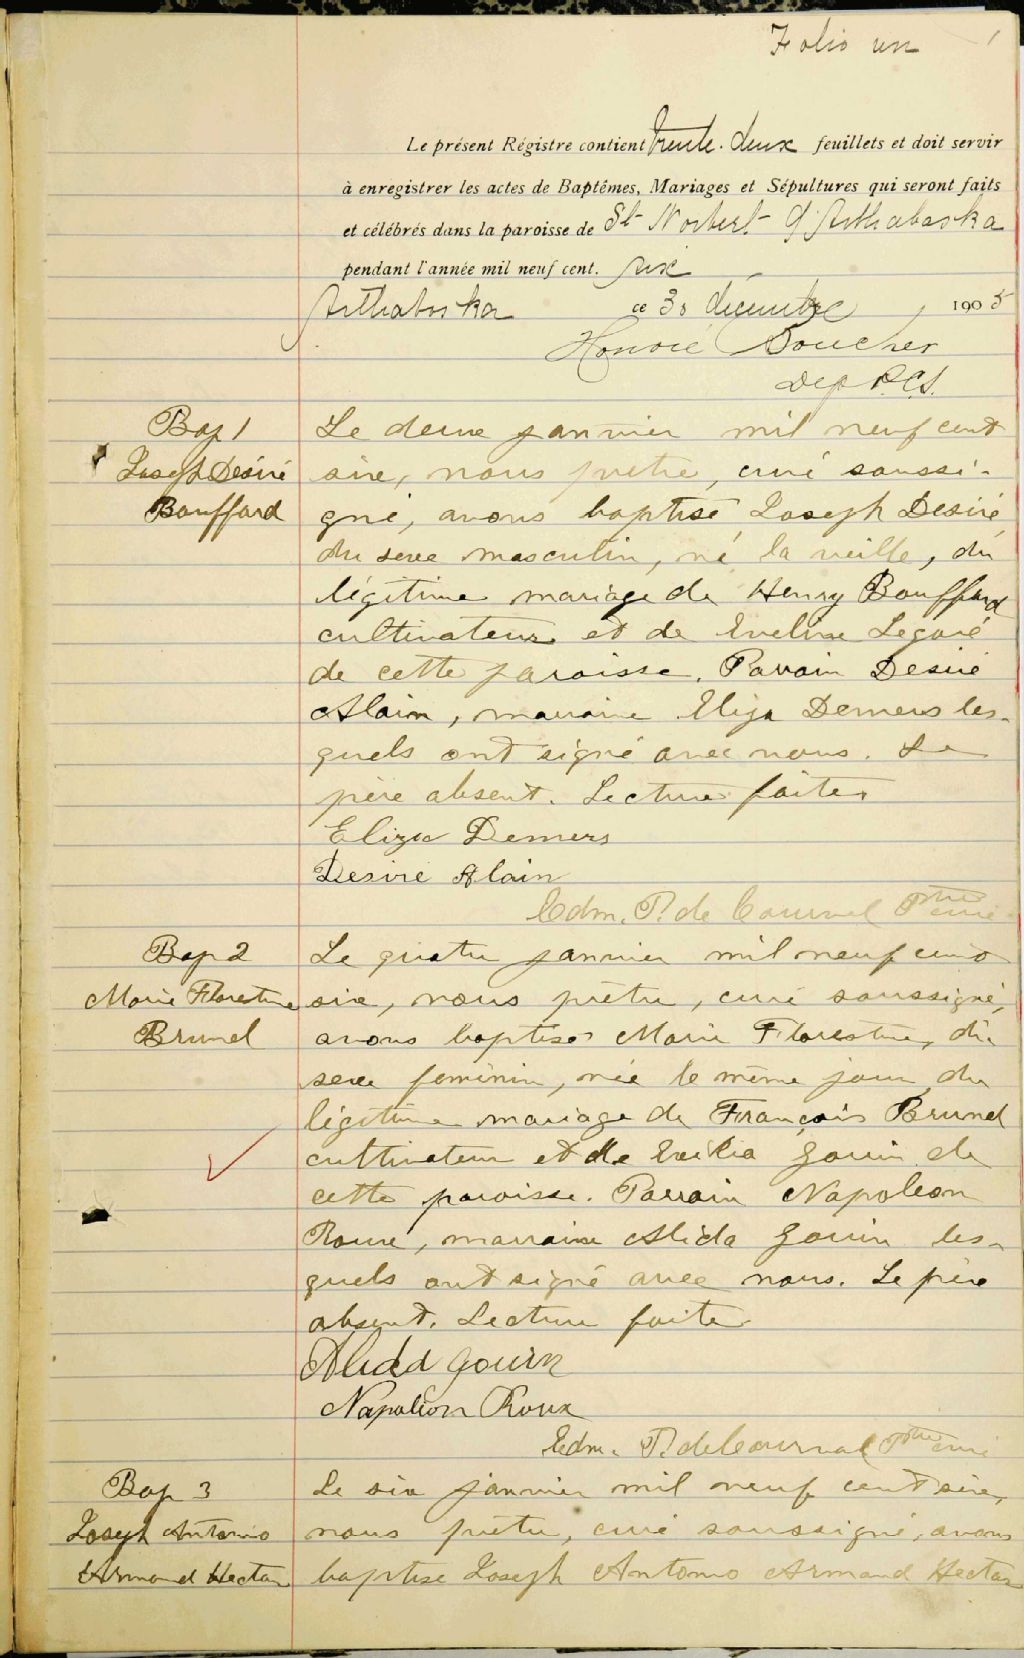 Folio un
Le présent Régistre contient trente-deux feuillets et doit servir
à enregistrer les actes de Baptêmes, Mariages et Sépultures qui seront faits
et célébrés dans la paroisse de St Norbert d'Arthabaska
pendant l'année mil neuf cent. six
Arthabaska ce 30 décembre 1905
Honoré Boucher
Dep P.C.S.
Bap 1
Joseph Desiré
Bouffard
Le deux janvier mil neuf cent
six, nous prêtre, curé soussi-
gné, avons baptisé Joseph Desiré
du sexe masculin, né la veille, du
légitime mariage de Henry Bouffard
cultivateur et de Eveline Legaré
de cette paroisse. Parrain Desiré
Alain, marraine Eliza Demers les-
quels ont signé avec nous. Le
père absent. Lecture faite
Eliza Demers
Desiré Alain
Edm. P. de Courval Ptre curé
Bap 2
Marie Florestine
Brunel
Le quatre janvier mil neuf cent
six, nous prêtre, curé soussigné,
avons baptisé Marie Florestine, du
sexe feminin, née le même jour, du
légitime mariage de François Brunel
cultivateur et de Gouin de
cette paroisse. Parrain Napoleon
Roux, marraine Alida Gouin les-
quels ont signé avec nous. Le père
absent. Lecture faite
Alida Gouin
Napoléon Roux
Edm. P. de Courval Ptre curé
Bap 3
Joseph Antonio
Armand Hector
Le six janvier mil neuf cent six,
nous prêtre, curé soussigné, avons
baptisé Joseph Antonio Armand Hector